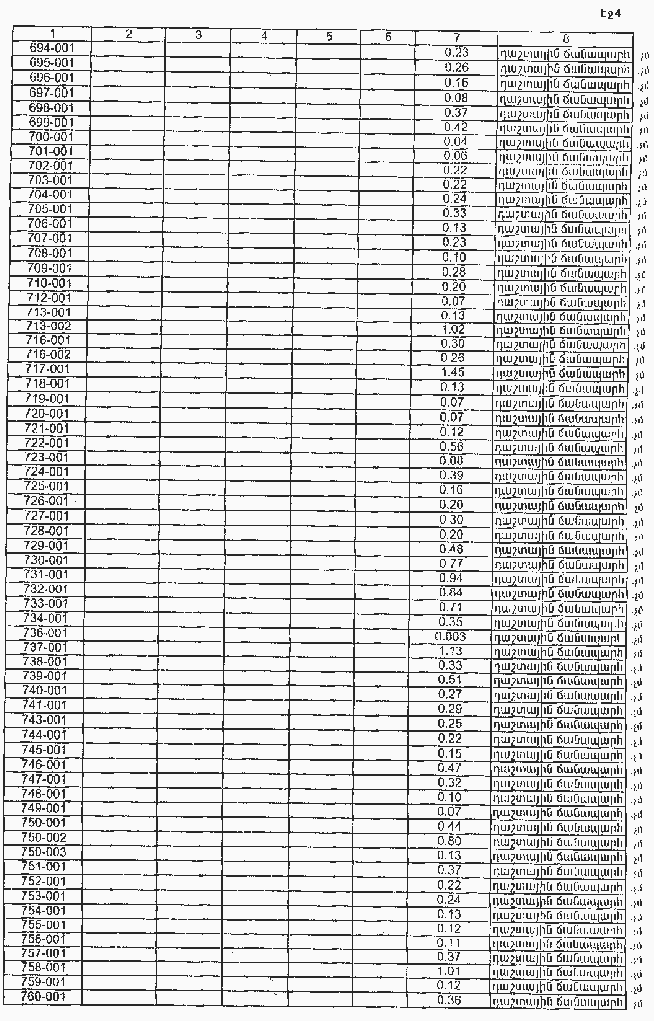 Էջ4
1 2 3 4 5 6 7 8
694-001 0.23 դաշտային ճանապարհ
695-001 0.26 դաշտային ճանապարհ
696-001 0.15 դաշտային ճանապարհ
697-001 0.08 դաշտային ճանապարհ
698-001 0.37 դաշտային ճանապարհ
699-001 0.42 դաշտային ճանապարհ
700-001 0.04 դաշտային ճանապարհ
701-001 0.06 դաշտային ճանապարհ
702-001 0.22 դաշտային ճանապարհ
703-001 0.22 դաշտային ճանապարհ
704-001 0.24 դաշտային ճանապարհ
705-001 0.33 դաշտային ճանապարհ
706-001 0.13 դաշտային ճանապարհ
707-001 0.23 դաշտային ճանապարհ
708-001 0.10 դաշտային ճանապարհ
709-001 0.28 դաշտային ճանապարհ
710-001 0.20 դաշտային ճանապարհ
712-001 0.07 դաշտային ճանապարհ
713-001 0.13 դաշտային ճանապարհ
713-002 1.02 դաշտային ճանապարհ
716-001 0.30 դաշտային ճանապարհ
716-002 0.26 դաշտային ճանապարհ
717-001 1.45 դաշտային ճանապարհ
718-001 0.13 դաշտային ճանապարհ
719-001 0.07 դաշտային ճանապարհ
720-001 0.07 դաշտային ճանապարհ
721-001 0.12 դաշտային ճանապարհ
722-001 0.56 դաշտային ճանապարհ
723-001 0.08 դաշտային ճանապարհ
724-001 0.39 դաշտային ճանապարհ
725-001 0.16 դաշտային ճանապարհ
726-001 0.20 դաշտային ճանապարհ
727-001 0.30 դաշտային ճանապարհ
728-001 0.20 դաշտային ճանապարհ
729-001 0.48 դաշտային ճանապարհ
730-001 0.77 դաշտային ճանապարհ
731-001 0.94 դաշտային ճանապարհ
732-001 0.84 դաշտային ճանապարհ
733-001 0.71 դաշտային ճանապարհ
734-001 0.35 դաշտային ճանապարհ
736-001 0.003 դաշտային ճանապարհ
737-001 1.13 դաշտային ճանապարհ
738-001 0.33 դաշտային ճանապարհ
739-001 0.51 դաշտային ճանապարհ
740-001 0.27 դաշտային ճանապարհ
741-001 0.29 դաշտային ճանապարհ
743-001 0.25 դաշտային ճանապարհ
744-001 0.22 դաշտային ճանապարհ
745-001 0.15 դաշտային ճանապարհ
746-001 0.47 դաշտային ճանապարհ
747-001 0.32 դաշտային ճանապարհ
748-001 0.10 դաշտային ճանապարհ
749-001 0.07 դաշտային ճանապարհ
750-001 0.44 դաշտային ճանապարհ
750-002 0.80 դաշտային ճանապարհ
750-003 0.13 դաշտային ճանապարհ
751-001 0.37 դաշտային ճանապարհ
752-001 0.22 դաշտային ճանապարհ
753-001 0.24 դաշտային ճանապարհ
754-001 0.13 դաշտային ճանապարհ
755-001 0.12 դաշտային ճանապարհ
756-001 0.11 դաշտային ճանապարհ
757-001 0.37 դաշտային ճանապարհ
758-001 1.01 դաշտային ճանապարհ
759-001 0.12 դաշտային ճանապարհ
760-001 0.36 դաշտային ճանապարհ